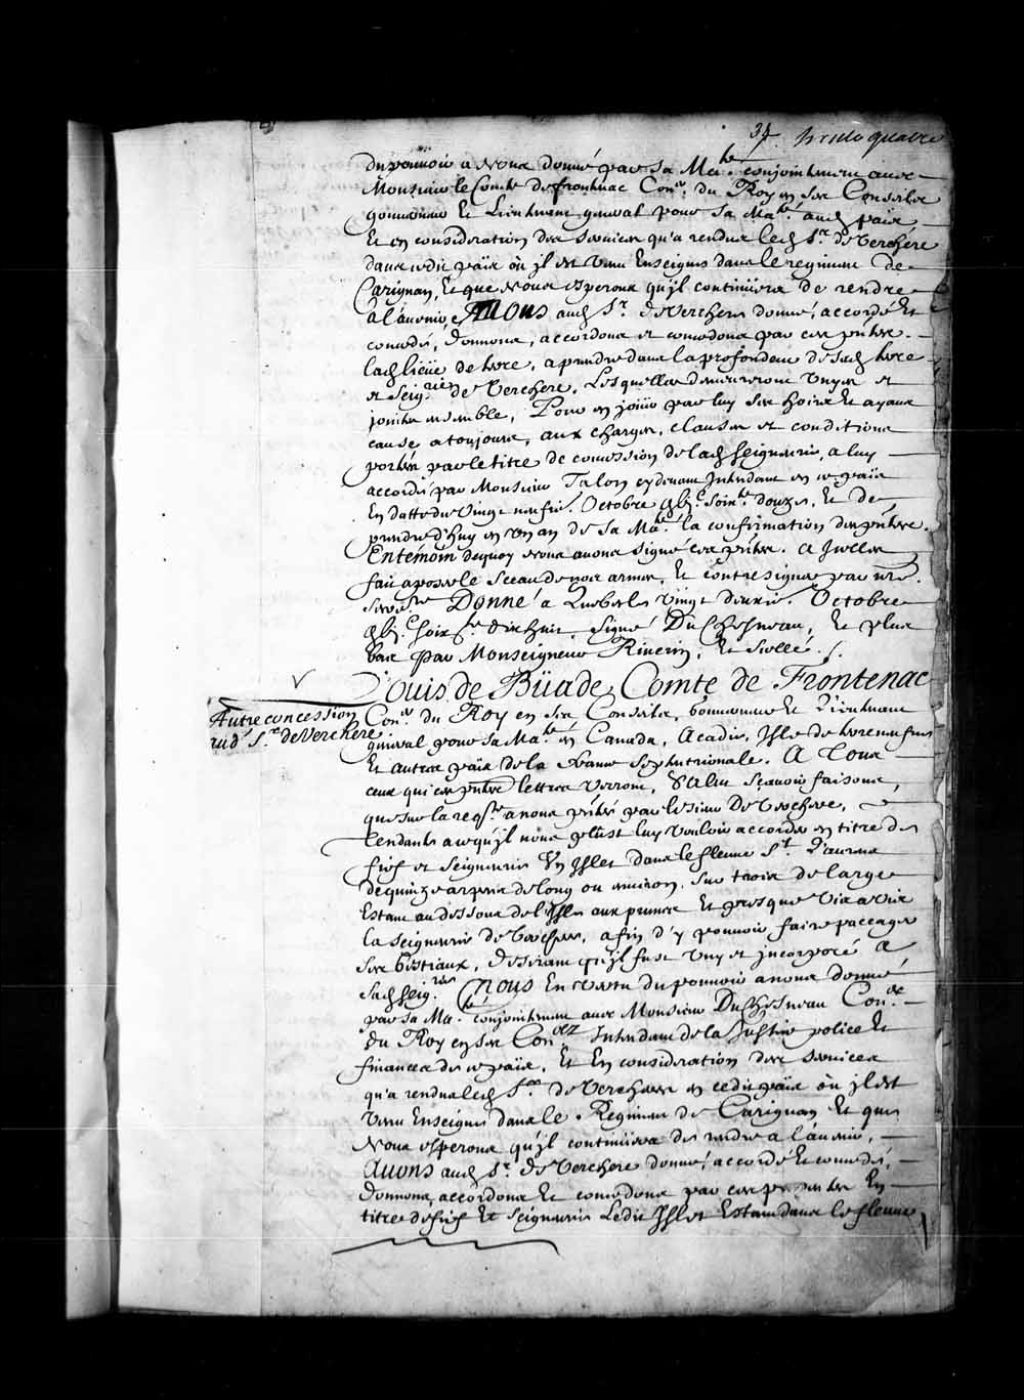 34. trente quatre
du pouvoir a Nous donné par sa Ma.té conjointement avec
Monsieur le Comte de frontenac Con.er du Roy en ses Conseils
gouverneur Et Lieutenant general pour Sa Ma.té aud païs
Et en consideration des services qu'a rendus led S.r de Verchere
dans cedit païs où jl est venu Enseigne dans le regiment de
Carignan, Et que Nous esperons qu'jl continüera de rendre
a l'avenir, Avons aud S.r de Verchere donné, accordé Et
concedé, donnons, accordons et concedons par ces pñtes.
lad lieüe de terre, a prendre dans la profondeur de sad terre
et Seig.rie de Verchere, Lesquelles demeureront unyes et
jointes ensemble, Pour en joüir par luy ses hoirs Et ayans
cause a toujours, aux charges, clauses et conditions
portées par le titre de concession de lad Seigneurie, a luy
accordé par Monsieur Talon cydevant Intendant en ce païs
En datte du vingt neufie. Octobre gbj.c soix.te douze, Et de
prendre d'huy en un an de sa Ma.té la confirmation des pñtes.
En témoin dequoy Nous avons signé ces pñtes. a jcelles
fait aposer le sceau de nos armes, Et contresigner par nre.
secre.re Donné a Quebec le vingt deuxie. Octobre
gbj.c soix.te dix huit, signé Du Chesneau, Et plus
bas par Monseigneur Riverin, Et scellé ./.
Louis de Büade, Comte de Frontenac
Autre concession
aud. S.r de Verchere
Con.er du Roy en ses Conseils, Gouverneur Et Lieutenant
general pour sa Ma.té en Canada, Acadie, Isle de terre neufve
Et autres païs de la france septentrionale. A Tous
ceux qui ces pñtes lettres verront, Salut sçavoir faisons,
que sur la req.te a nous pñtée par le sieur De Verchere,
tendante a ce qu'jl nous plust luy vouloir accorder en titre de
fief et seigneurie Un Jslet dans le fleuve S.t Laurens
de quinze arpens de long ou environ, sur trois de large
Estant audessous de l'Jsle aux prunes Et presque vis a vis
la seigneurie de Verchere, afin d'y pouvoir faire paccager
ses bestiaux, desirant qu'jl fust uny et jncorporé a
sad seig.rie Nous En vertu du pouvoir a nous donné
par sa Ma.té conjointement avec Monsieur Du Chesneau Con.er
du Roy en ses Con.elz Intendant de la Justice police Et
finances de ce païs, Et En consideration des services
qu'a rendus led S.r de Verchere en cedit païs où jl est
venu Enseigne dans le Regiment de Carignan Et que
Nous esperons qu'jl continüera de rendre a l'avenir,
Avons aud S.r de Verchere donné, accordé Et concedé,
donnons, accordons Et concedons par ces presentes En
titre de fief Et seigneurie Ledit Jslet Estant dans le fleuve